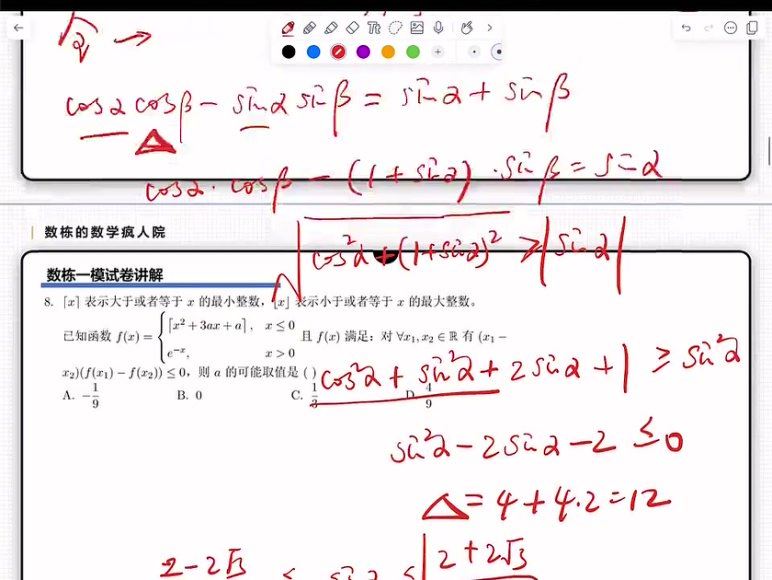 cosα cosβ - sinα sinβ = sinα + sinβ
cosα · cosβ - (1 + sinα) · sinβ = sinα
数栋的数学疯人院
√(cos²α + (1+sinα)²) ≥ |sinα|
数栋一模试卷讲解
8. ⌈x⌉ 表示大于或者等于 x 的最小整数，⌊x⌋ 表示小于或者等于 x 的最大整数。
已知函数 f(x) = { ⌈x² + 3ax + a⌉, x ≤ 0
e⁻ˣ, x > 0
且 f(x) 满足：对 ∀x₁, x₂ ∈ ℝ 有 (x₁ −
x₂)(f(x₁) − f(x₂)) ≤ 0，则 a 的可能取值是 ( )
A. −1/9 B. 0 C. 1/3 D. 4/9
cos²α + sin²α + 2sinα + 1 ≥ sin²α
sin²α - 2sinα - 2 ≤ 0
Δ = 4 + 4·2 = 12
2 - 2√3 ≤ sinα ≤ 2 + 2√3